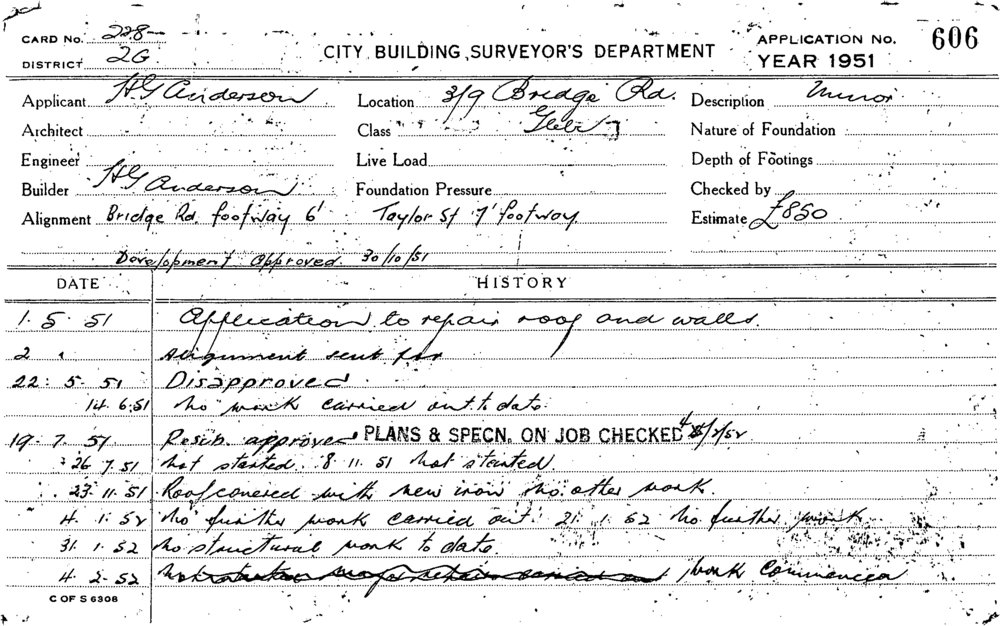 CARD No. 228
DISTRICT 2G
CITY BUILDING SURVEYOR'S DEPARTMENT
APPLICATION No. 606
YEAR 1951
Applicant HG Anderson
Location 3/9 Bridge Rd.
Description Minor
Architect
Class Glebe
Nature of Foundation
Engineer
Live Load
Depth of Footings
Builder HG Anderson
Foundation Pressure
Checked by
Alignment Bridge Rd footway 6' Taylor St 7' footway
Estimate £850
Development Approved 30/10/51
DATE HISTORY
1. 5. 51 Application to repair roof and walls.
2 " Alignment sent for
22. 5. 51 Disapproved
14.6.51 No work carried out to date.
19. 7. 51 Resub. approved PLANS & SPECN. ON JOB CHECKED 4/2/52
26 7.51 Not started. 8 11. 51 Not started.
23. 11. 51 Roof covered with new iron no other work.
4. 1. 52 No further work carried out. 21. 1. 52 No further work
31. 1. 52 No structural work to date.
4. 2. 52 work commenced
C OF S 6308